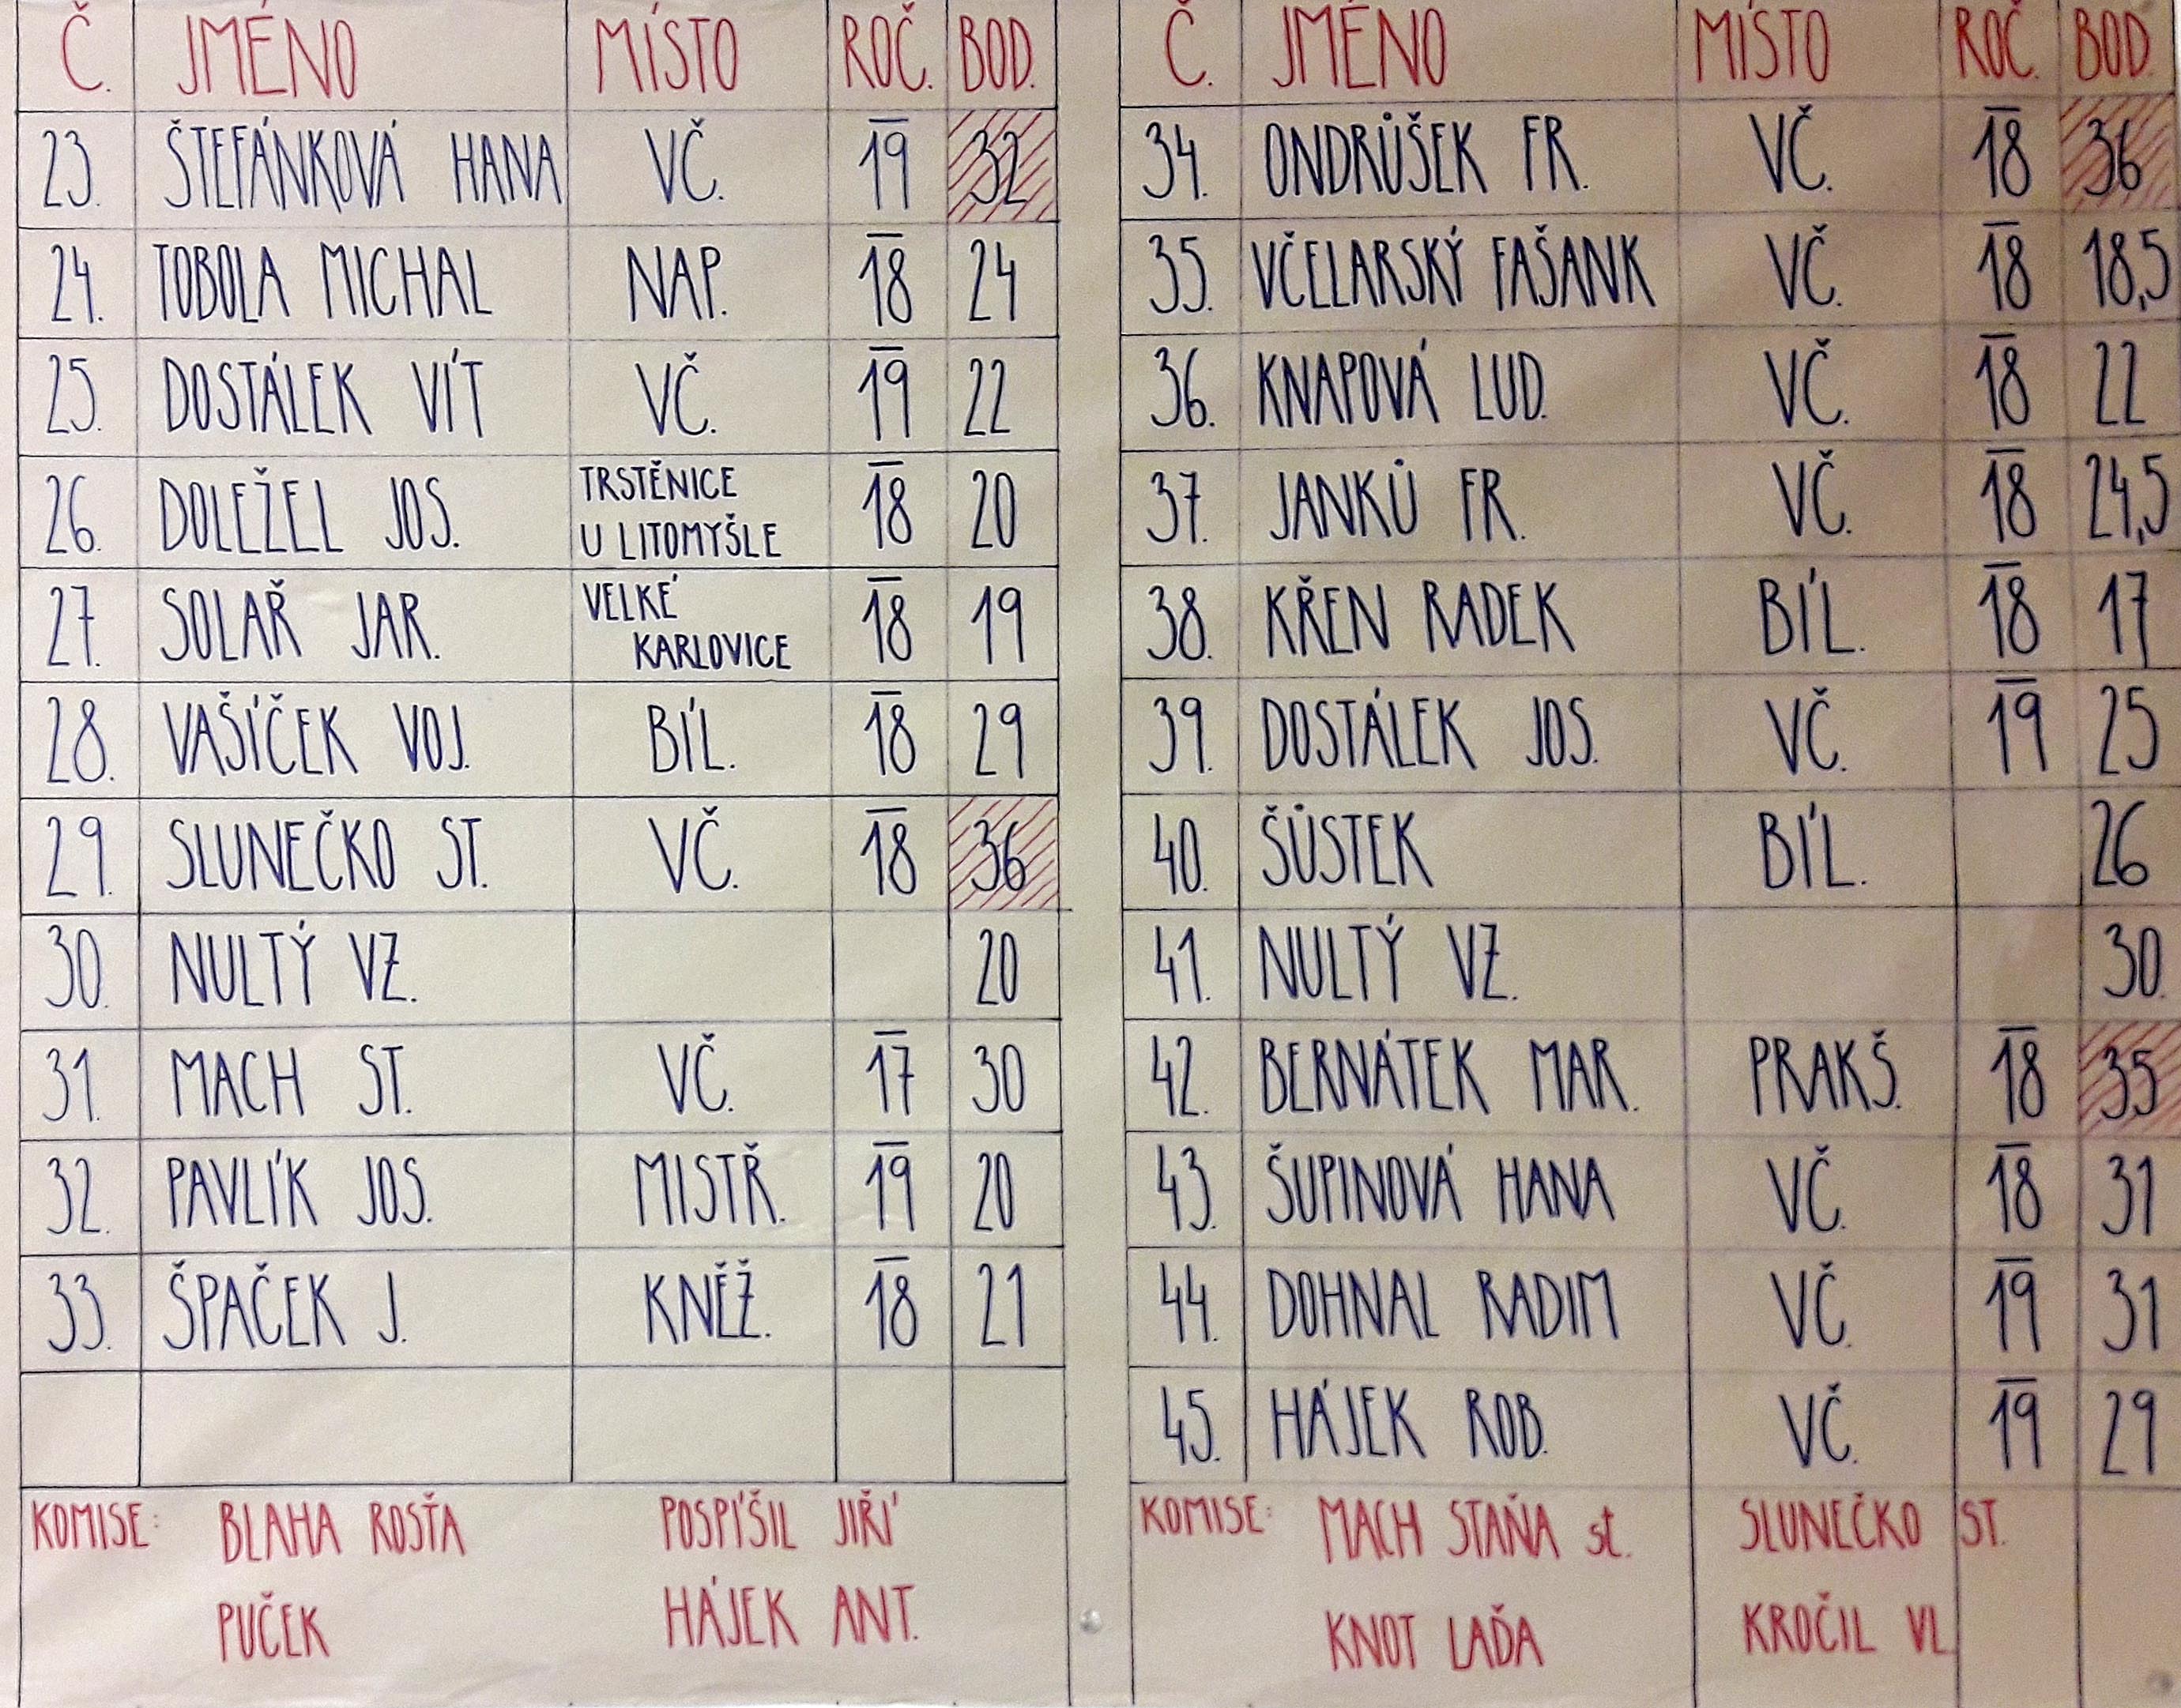 Č. JMÉNO MÍSTO ROČ. BOD.
23. ŠTEFÁNKOVÁ HANA VČ. 19 32
24. TOBOLA MICHAL NAP. 18 24
25. DOSTÁLEK VÍT VČ. 19 22
26. DOLEŽEL JOS. TRSTĚNICE U LITOMYŠLE 18 20
27. SOLAŘ JAR. VELKÉ KARLOVICE 18 19
28. VAŠÍČEK VOJ. BÍL. 18 29
29. SLUNEČKO ST. VČ. 18 36
30. NULTÝ VZ. 20
31. MACH ST. VČ. 17 30
32. PAVLÍK JOS. MISTŘ. 19 20
33. ŠPAČEK J. KNĚŽ. 18 21
KOMISE: BLAHA ROSŤA POSPÍŠIL JIŘÍ
PUČEK HÁJEK ANT.
Č. JMÉNO MÍSTO ROČ. BOD.
34. ONDRŮŠEK FR. VČ. 18 36
35. VČELARSKÝ FAŠANK VČ. 18 18,5
36. KNAPOVÁ LUD. VČ. 18 22
37. JANKŮ FR. VČ. 18 24,5
38. KŘEN RADEK BÍL. 18 17
39. DOSTÁLEK JOS. VČ. 19 25
40. ŠŮSTEK BÍL. 26
41. NULTÝ VZ. 30.
42. BERNÁTEK MAR. PRAKŠ. 18 35
43. ŠUPINOVÁ HANA VČ. 18 31
44. DOHNAL RADIM VČ. 19 31
45. HÁJEK ROB. VČ. 19 29
KOMISE: MACH STAŇA st. SLUNEČKO ST.
KNOT LAĎA KROČIL VL.